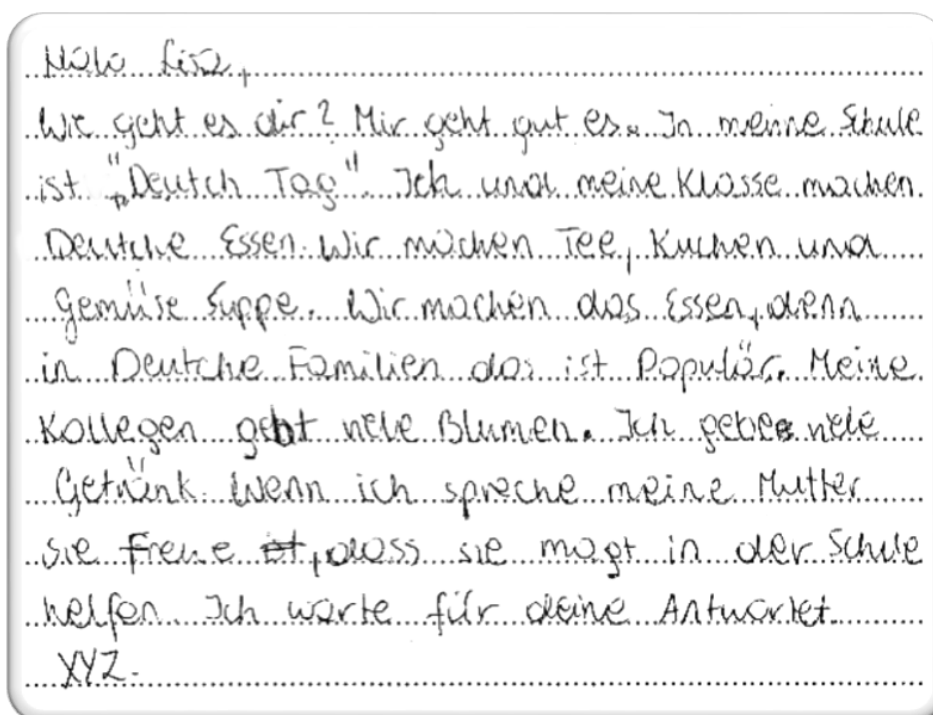 Halo Lisa,
Wie geht es dir? Mir geht gut es. In meine Schule
ist "Deutch Tag". Ich und meine Klasse machen
Deutche Essen. Wir machen Tee, Kuchen und
Gemüise Suppe. Wir machen das Essen, denn
in Deutche Familien das ist Populär. Meine
Kollegen gebt viele Blumen. Ich gebe viele
Getränk. Wenn ich spreche meine Mutter
sie freue, dass sie magt in der Schule
helfen. Ich warte für deine Antwortet.
XYZ.